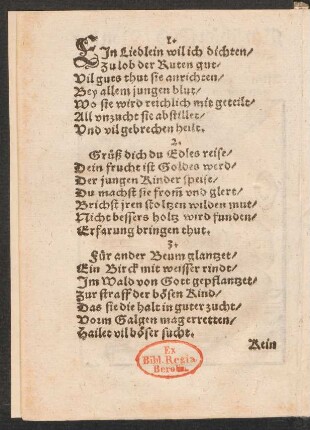 1.
EIn Liedlein wil ich dichten/
Zu lob der Ruten gut/
Vil guts thut sie anrichten/
Bey allem jungen blut/
Wo sie wird reichlich mit geteilt/
All vnzucht sie abstillet/
Vnd vil gebrechen heilt.
2.
Grüß dich du Edles reise/
Dein frucht ist Goldes werd/
Der jungen Kinder speise/
Du machst sie from̃ vnd glert/
Brichst jren stoltzen wilden mut/
Nicht bessers holtz wird funden/
Erfarung bringen thut.
3.
Für ander Beum glantzet/
Ein Birck mit weisser rindt/
Im Wald von Gott gepflantzet/
Zur straff der bösen Kind/
Das sie die halt in guter zucht/
Vorm Galgen mag erretten/
Hailet vil böser sucht.
Kein
Ex
Bibl. Regia
Berolin.